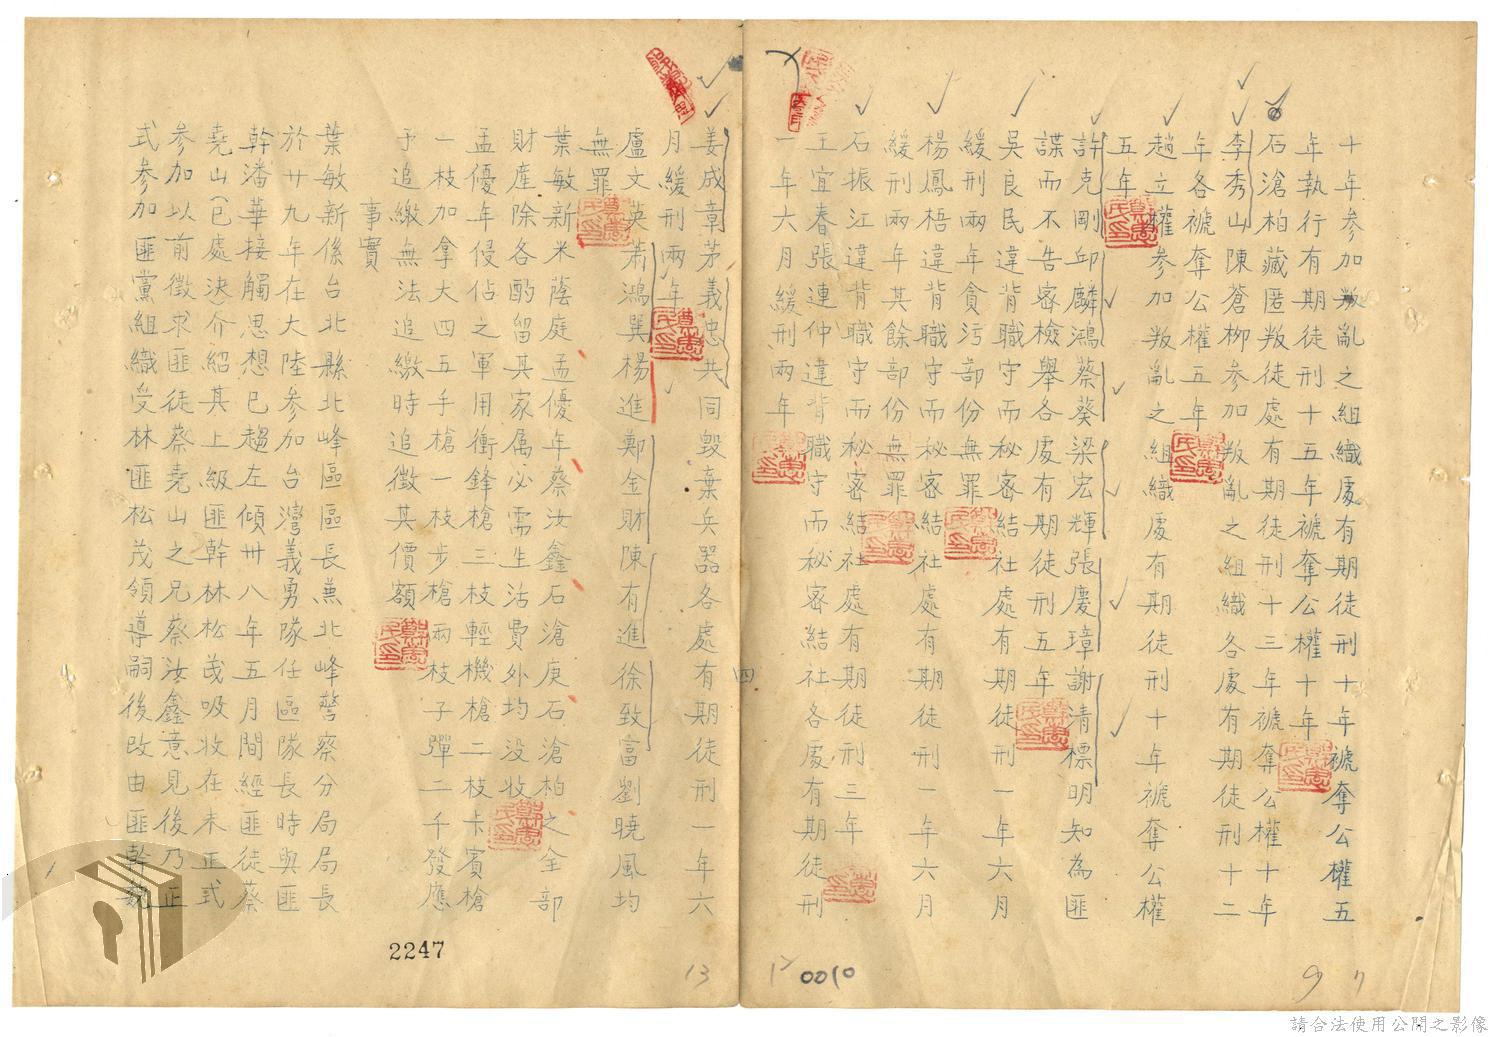 十年參加叛亂之組織處有期徒刑十年褫奪公權五
年執行有期徒刑十五年褫奪公權十年
石滄柏藏匿叛徒處有期徒刑十三年褫奪公權十年
李秀山陳蒼柳參加叛亂之組織各處有期徒刑十二
年各褫奪公權五年
趙立權參加叛亂之組織處有期徒刑十年褫奪公權
五年
許克剛邱麟鴻蔡葵梁宏輝張慶璋謝清標明知為匪
諜而不告密檢舉各處有期徒刑五年
吳良民違背職守而秘密結社處有期徒刑一年六月
緩刑兩年貪污部份無罪
楊鳳梧違背職守而秘密結社處有期徒刑一年六月
緩刑兩年其餘部份無罪
石振江違背職守而秘密結社處有期徒刑三年
王宜春張連仲違背職守而秘密結社各處有期徒刑
一年六月緩刑兩年
四
姜成章茅義忠共同毀棄兵器各處有期徒刑一年六
月緩刑兩年
盧文英蕭鴻巽楊進鄭金財陳有進徐致富劉曉風均
無罪
葉敏新米蔭庭孟優年蔡汝鑫石滄庚石滄柏之全部
財產除各酌留其家属必需生活費外均沒收
孟優年侵佔之軍用衝鋒槍三枝輕機槍二枝卡賓槍
一枝加拿大四五手槍一枝步槍兩枝子彈二千發應
予追繳無法追繳時追徵其價額
事實
葉敏新係台北縣北峰區區長兼北峰警察分局局長
於廿九年在大陸參加台灣義勇隊任區隊長時與匪
幹潘華接觸思想已趨左傾卅八年五月間經匪徒蔡
堯山(已處決)介紹其上級匪幹林松茂吸收在未正式
參加以前徵求匪徒蔡堯山之兄蔡汝鑫意見後乃正
式參加匪黨組織受林匪松茂領導嗣後改由匪幹魏
2247
13
0010
請合法使用公開之影像